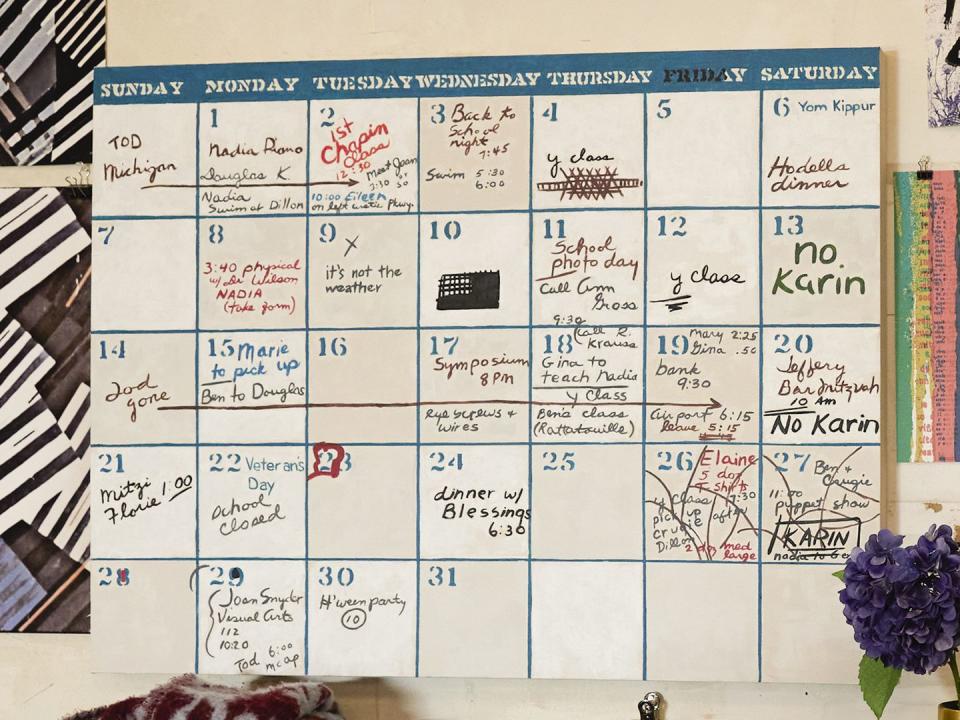 SUNDAY MONDAY TUESDAY WEDNESDAY THURSDAY FRIDAY SATURDAY
TOD
Michigan
1
Nadia Piano
Douglas K.
Nadia
Swim at Dillon
2
1st
Chapin
Class
12:30
Meet Joan
10:00 Eileen
on left Pkwy.
3 Back to
School
night
7:45
Swim 5:30
6:00
4
y class
5
6 Yom Kippur
Hodells
dinner
7
8
3:40 physical
w/ Dr Wilson
NADIA
(take form)
9
X
it's not the
weather
10
11
School
photo day
Call Ann
Gross
9:30
12
y class
13
no
Karin
14
Tod
gone
15 Marie
to pick up
Ben to Douglas
16
17
Symposium
8 PM
eye screws +
wires
Call R.
Krauss
18
Gina to
teach Nadia
y Class
Ben's class
(Rattatouille)
19 Mary 2:25
Gina .50
bank
9:30
Airport 6:15
leave 5:15
20
Jeffery
Bar Mitzvah
10 Am
No Karin
21
Mitzi 1:00
Florie
22 Veteran's
Day
School
closed
23
24
dinner w/
Blessings
6:30
25
26 Elaine
5 doz
T shirts
y Class 7:30
pick up after
Dillon
2 doz med
large
27 Ben +
11:00
puppet show
KARIN
nadia to
28
29
Joan Snyder
Visual Arts
112
10:20
Tod 6:00
30
H'ween party
10
31